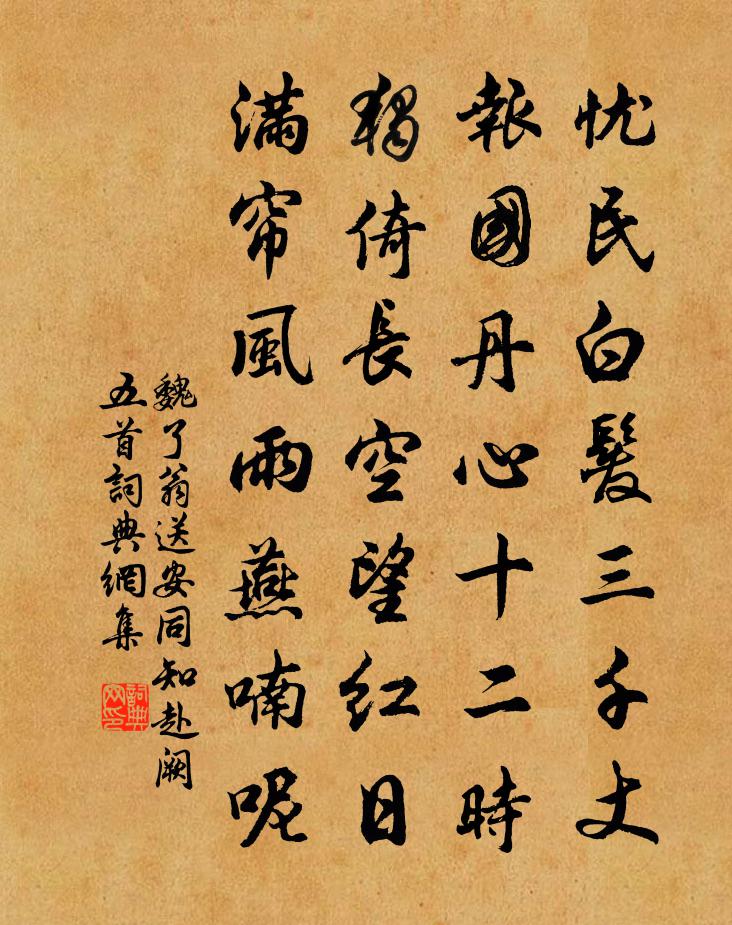 忧民白髮三千丈
報國丹心十二時
獨倚長空望红日
滿帘風雨燕喃呢
魏了翁送安同知赴阙
五首詞典網集
詞典网印